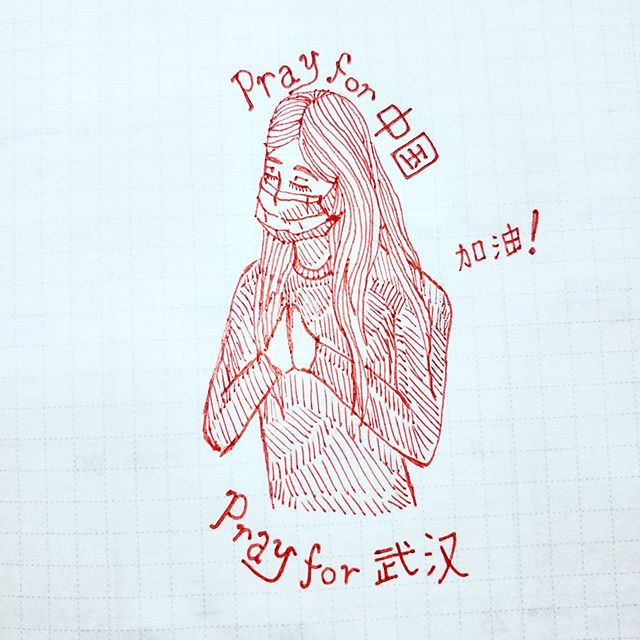 Pray for 中国
加油!
Pray for 武汉